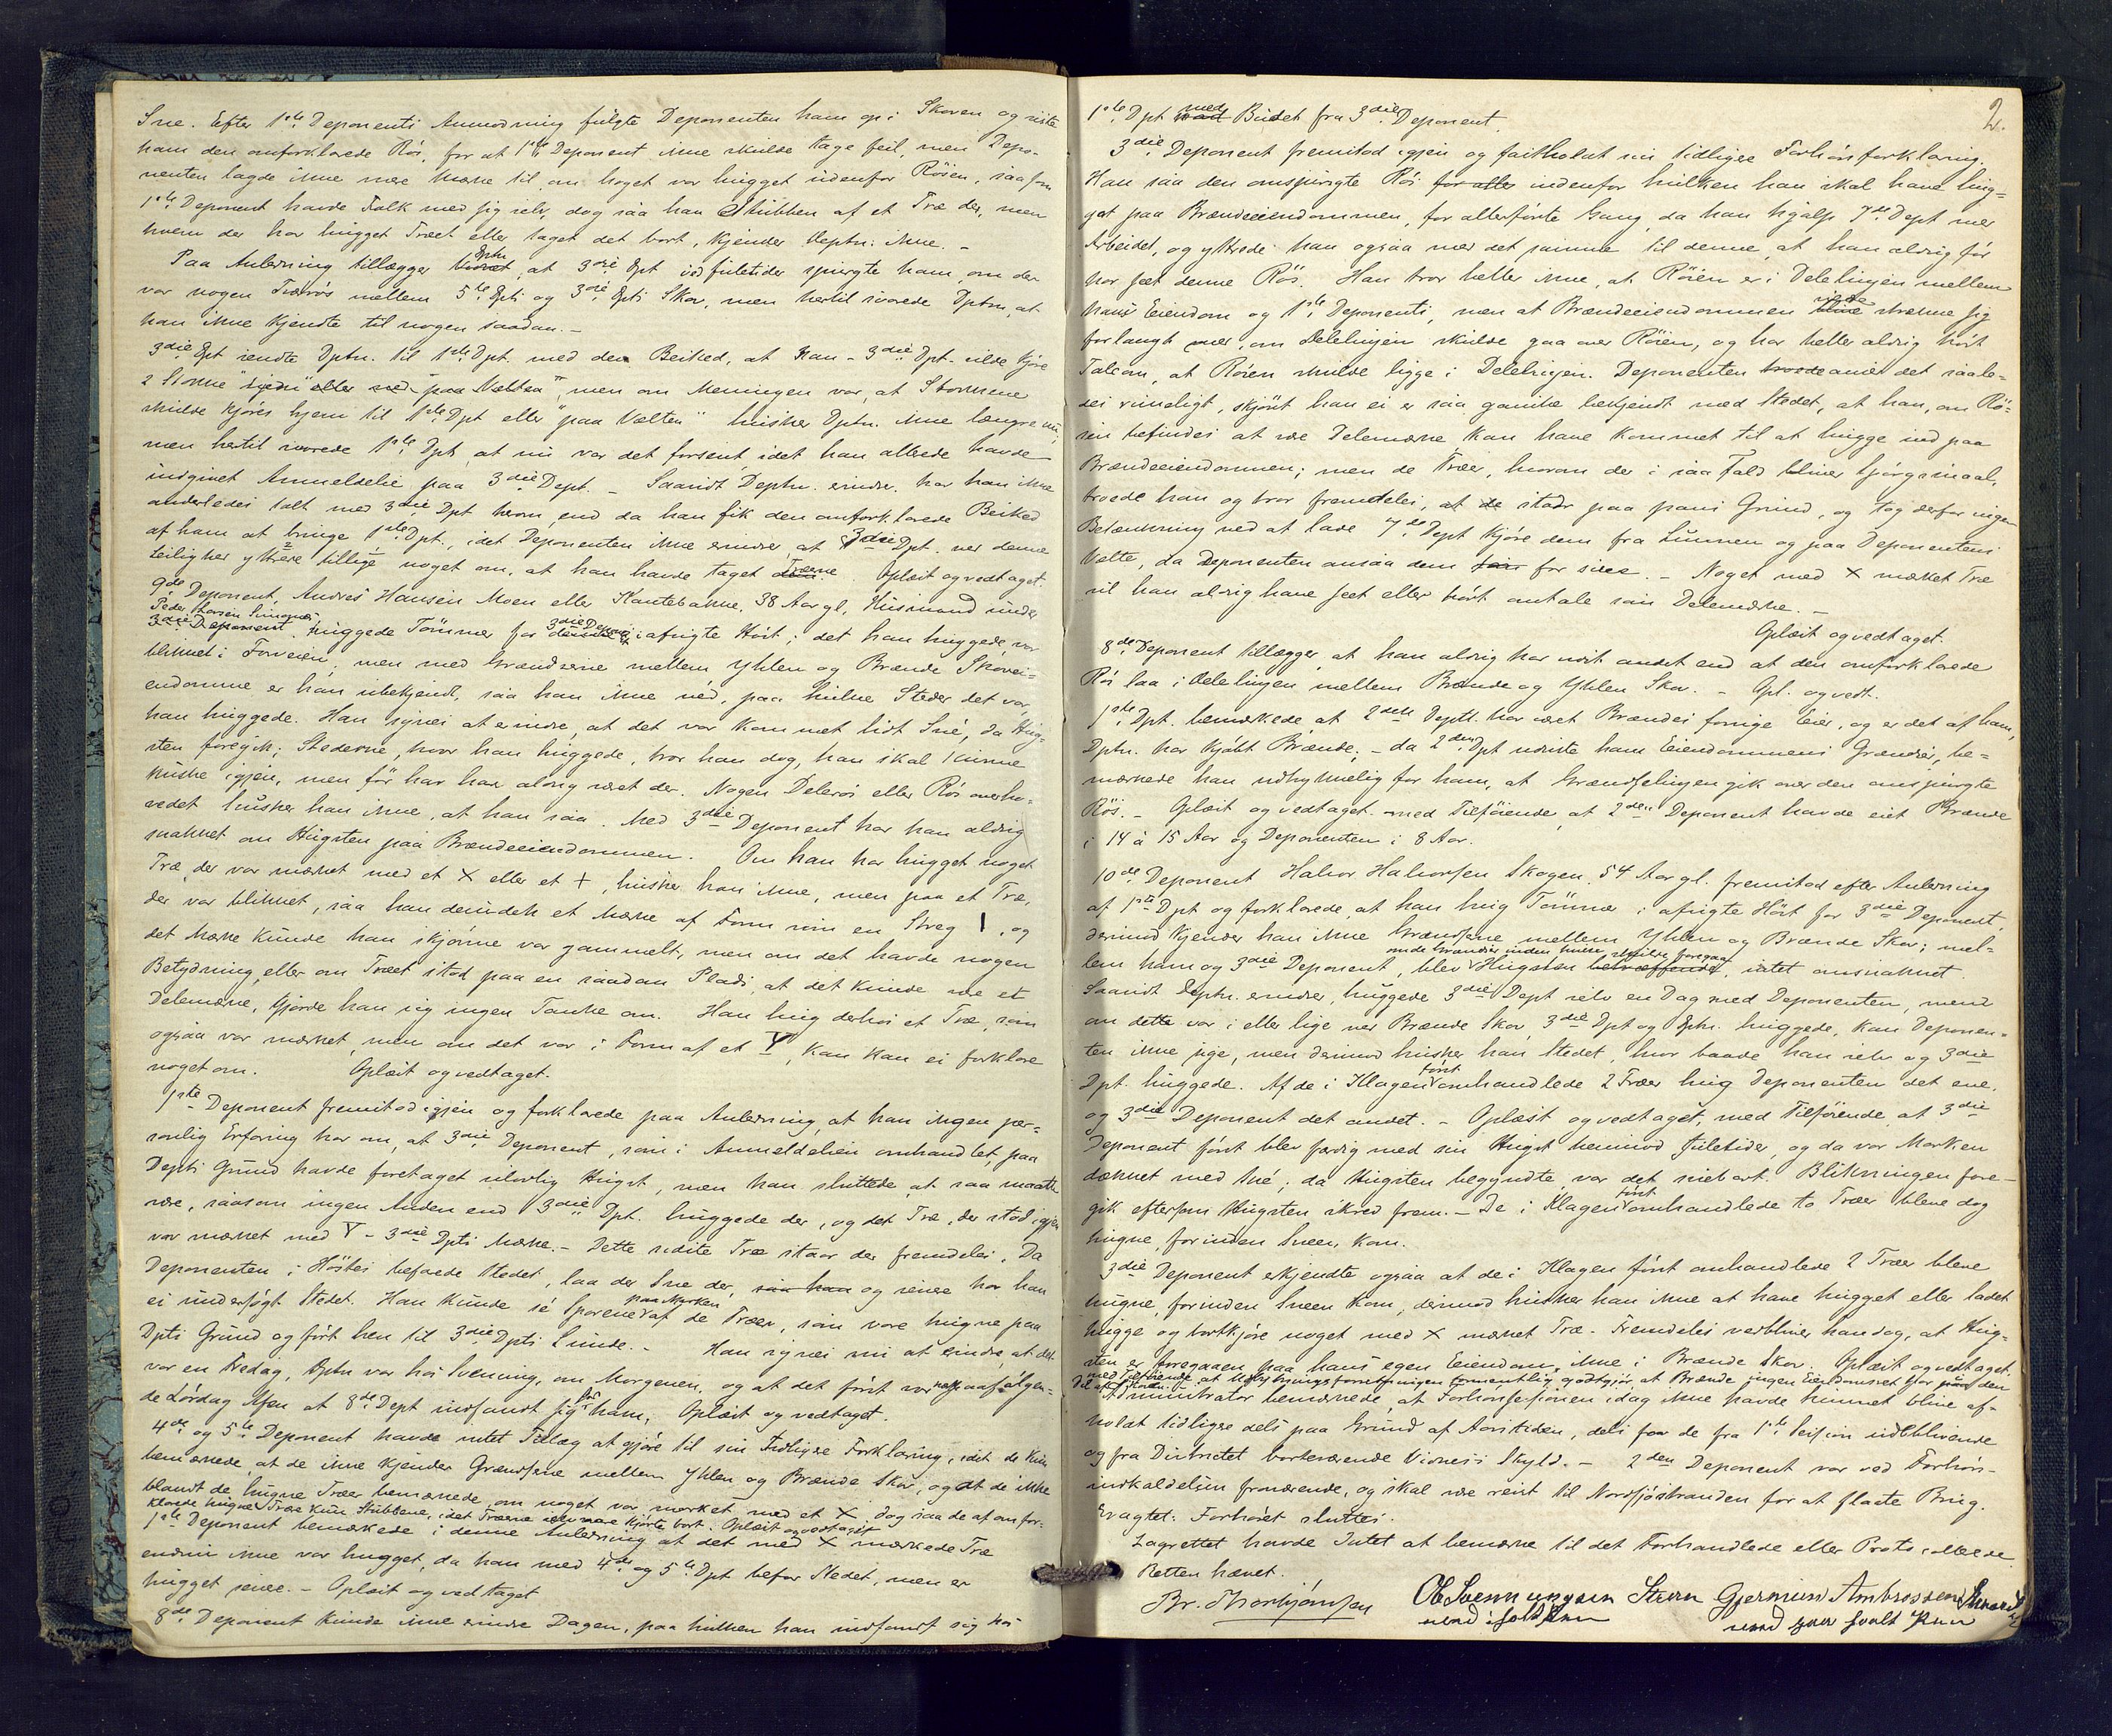 Sne. Efter 1ste Deponents Anmodning fulgte Deponenten ham op i Skoven og viste
ham den omforklarede Rös, for at 1ste Deponent ikke skulde tage feil, men Depo-
nenten lagde ikke nøie Mærke til, om noget var hugget udenfor Rösen, saasom
1ste Deponent havde Folk med sig selv, dog saa han Stubben af et Træ der, men
hvem der har hugget Træet eller taget det bort, kjender Deptn. ikke. –
Paa Anledning tillægger Dptn, at 3die Dpt ved Juletider spurgte ham, om der
var nogen Trærös mellem 5te Dpts og 3die Dpts Skov, men hertil svarede Dptn, at
han ikke kjendte til nogen saadan. –
3die Dpt sendte Dptn. til 1ste Dpt. med den Besked, at han – 3die Dpt – vilde kjøre
2 Stokke "hjem" eller ned "paa Væltea", men om Meningen var, at Stokkene
skulde kjøres hjem til 1ste Dpt eller "paa Vælten" husker Dptn. ikke længre nu,
men hertil svarede 1ste Dpt, at nu var det forsent, idet han allerede havde
indgivet Anmeldelse paa 3die Dept. – Saavidt Deptn. erindrer, har han ikke
anderledes talt med 3die Dpt herom, end da han fik den omforklarede Besked
af ham at bringe 1ste Dpt., idet Deponenten ikke erindrer, at 3die Dpt. ved denne
Leilighed yttrede tillige noget om, at han havde taget Træerne. Oplæst og vedtaget.
9de Deponent, Andreas Hansen Moen eller Kantebakke, 38 Aar gl., Husmand under
Peder Larsen, huggede Tömmer for 3die Depont i afvigte Höst; det han huggede, var
blinket i Forveien, men med Grændserne mellem Yhlen og Brænde Skovei-
endomme er han ubekjendt, saa han ikke véd, paa hvilke Steder det var,
han huggede. Han synes at erindre, at det var kommet lidt Sné, da Hug-
sten foregik; Stederne, hvor han huggede, tror han dog, han skal kunne
kjende igjen, men för har han aldrig været der. Nogen Delerös eller Rös overho-
vedet husker han ikke, at han saa. Med 3die Deponent har han aldrig
snakket om Hugsten paa Brændeeiendommen. Om han har hugget noget
Træ, der var mærket med et X eller et +, husker han ikke, men paa et Træ,
der var blinket, saa han desuden et Mærke af Form som en Streg \, og
det Mærke kunde han skjönne var gammelt, men om det havde nogen
Betydning, eller om Træet stod paa en saadan Plads, at det kunde være et
Delemærke, gjorde han sig ingen Tanke om. Han hug derhos et Træ, som
ogsaa var mærket, men om det var i Form af et V, kan han ei forklare
noget om. Oplæst og vedtaget.
1ste Deponent fremstod igjen og forklarede paa Anledning, at han ingen per-
sonlig Erfaring har om, at 3die Deponent, som i Anmeldelsen omhandlet, paa
Depts Grund havde foretaget ulovlig Hugst, men han sluttede, at saa maatte
være, saasom ingen Anden end 3die Dpt. huggede der, og det Træ, der stod igjen
var mærket med V – 3die Dpts Mærke. – Dette sidste Træ staar der fremdeles. Da
Deponenten i Höstes befarede Stedet, laa der Sne der, saa han og senere har han
ei undersøgt Stedet. Han kunde sé Sporene paa Marken af de Træer, som vare hugne paa
Dpts Grund og fört hen til 3die Dpts Lunde. – Han synes nu at erindre, at det
var en Fredag, Dptn var hos Svenning, om Morgenen, og at det först var paafölgen-
de Lördag Aften at 8de Dept indfandt sig hos ham. Oplæst og vedtaget.
4de og 5te Deponent havde intet Tillæg at gjöre til sin tidligere Forklaring, idet de kun
bemærkede, at de ikke kjender Grændserne mellem Yhlen og Brænde Skov, og at de ikke
blandt de hugne Træer bemærkede, om noget var mærket med et X, dog saa de af omfor-
klarede hugne Træer kun Stubbene, idet Træerne selv vare kjørte bort. Oplæst og vedtaget
1ste Deponent bemærkede i denne Anledning at det med X mærkede Træ
endnu ikke var hugget, da han med 4de og 5te Dpt befor Stedet, men er
hugget senere. – Oplæst og vedtaget
8de Deponent kunde ikke erindre Dagen, paa hvilken han indfandt sig hos
2.
1ste Dpt med Budet fra 3die Deponent.
3die Deponent fremstod igjen og fastholdt sin tidligere Forhörsforklaring.
Han saa den omspurgte Rös for aller indenfor hvilken han skal have hug-
get paa Brændeeiendommen, for allerförste Gang, da han hjalp 7de Dept med
Arbeidet, og yttrede han ogsaa med det samme til denne, at han aldrig för
har seet denne Rös. Han tror heller ikke, at Rösen er i Delelinjen mellem
hans Eiendom og 1ste Deponents, men at Brændeeiendommen vilde strække sig
forlangt ned, om Delelinjen skulde gaa over Rösen, og har heller aldrig hört
Tale om, at Rösen skulde ligge i Delelinjen. Deponenten troede anser det saale-
des rimeligt, skjönt han ei er saa ganske bekjendt med Stedet, at han, om Rö-
sen befindes at være Delemærke kan have kommet til at hugge ind paa
Brændeeiendommen; men de Træer, hvorom der i saa Fald bliver Spörgsmaal,
troede han og tror fremdeles, at de stode paa hans Grund, og tog derfor ingen
Betænkning ved at lade 7de Dept kjöre dem fra Lunnen og paa Deponentens
Vælte, da Deponenten ansaa dem for sine. – Noget med X mærket Træ
vil han aldrig have seet eller hört omtale som Delemærke. –
Oplæst og vedtaget.
8de Deponent tillægger, at han aldrig har vidst andet end at den omforklarede
Rös laa i Delelinjen mellem Brænde og Yhlen Skov. – Opl. og vedt.
1ste Dpt. bemærkede at 2den Deptt. har været Brændes forrige Eier, og er det af ham,
Dptn. har kjöbt Brænde; – da 2den Dpt udviste ham Eiendommens Grændser, be-
mærkede han udtrykkelig for ham, at Grændselinjen gik over den omspurgte
Rös. – Oplæst og vedtaget med Tilföiende, at 2den Deponent havde eiet Brænde
i 14 à 15 Aar og Deponenten i 8 Aar.
10de Deponent Halvor Halvorsen Skogen, 54 Aar gl. fremstod efter Anledning
af 1ste Dpt og forklarede, at han hug Tömmer i afvigte Höst for 3die Deponent,
derimod kjender han ikke Grændserne mellem Yhlen og Brænde Skov; mel-
lem ham og 3die Deponent, blev med Hensyn til de Grændser inden hvilke Hugsten skulde foregaa, intet omsnakket.
Saavidt Dptn. erindrer, huggede 3die Dept selv en Dag med Deponenten, mend
om dette var i eller lige ved Brænde Skov, 3die Dpt og Dptn. huggede, kan Deponen-
ten ikke sige, men derimod husker han Stedet, hvor baade han selv og 3die
Dpt. huggede. Af de i Klagen först omhandlede 2 Træer hug Deponenten det ene,
og 3die Deponent det andet. – Oplæst og vedtaget, med Tilföiende at 3die
Deponent först blev færdig med sin Hugst henimod Juletider, og da var Marken
dækket med Sné; da Hugsten begyndte, var det snebart. Blinkningen fore-
gik eftersom Hugsten skred frem. – De i Klagen först omhandlede to Træer bleve dog
hugne, forinden Sneen kom.
3die Deponent erkjendte ogsaa at de i Klagen först omhandlede 2 Træer bleve
hugne, forinden Sneen kom, derimod husker han ikke at have hugget eller ladet
hugge og bortkjöre noget med X mærket Træ. Fremdeles vedbliver han dog, at Hug-
sten er foregaaen paa hans egen Eiendom, ikke i Brænde Skov. Oplæst og vedtaget.
Administrator bemærkede, at Forhörssessionen idag ikke havde kunnet blive af-
holdt tidligere dels paa Grund af Aarstiden, dels for de fra 1ste Session udeblivende
og fra Distriktet bortværende Vidners Skyld. – 2den Deponent var ved Forhörs-
indkaldelsen fraværende, og skal være reist til Nordsjöstranden for at flaate Brug.
Eragtet: Forhöret sluttes.
Lagrettet havde Intet at bemærke til det Forhandlede eller Protocollerede.
Retten hævet.
Br. Thorbjörnsen Ole Svennungsen Steen Gjermund Ambrossen
med iholdt Pen med paaholdt Pen